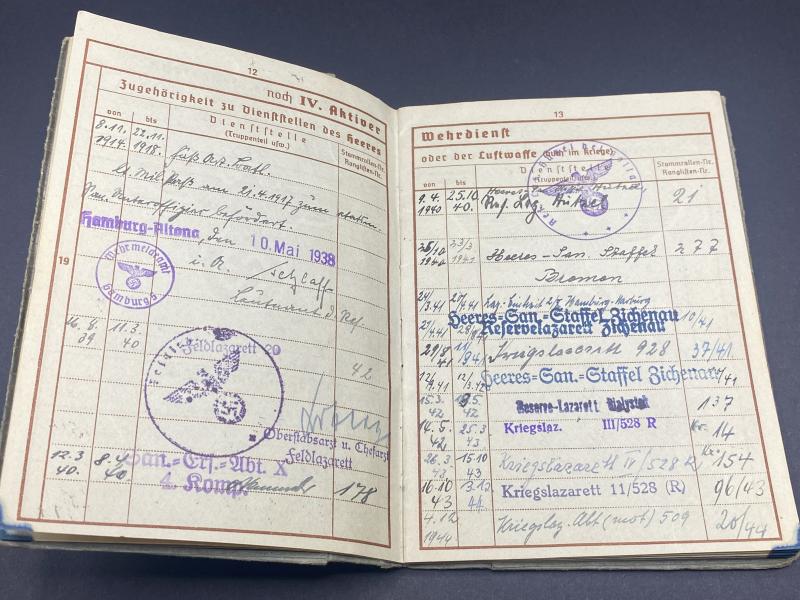 12
noch IV. Aktiver
Zugehörigkeit zu Dienststellen des Heeres
von
bis
Dienststelle
(Truppenteil usw.)
Stammrollen-Nr.
Ranglisten-Nr.
8.11. 22.11.
1914. 1918.
Lt. Mil. Paß am 21.4.1917 zum
San. Unteroffizier befördert.
Hamburg-Altona, den 10. Mai 1938
19
Wehrmeldeamt
Hamburg 3
i. A.
Leutnant d. Res
16. 8. 11.3
39 40
Feldlazarett 20
42
Oberstabsarzt u. Chefarzt
Feldlazarett
12.3 8.4
40. 40
San.-Ers.-Abt. X
4. Komp.
178
13
Wehrdienst
oder der Luftwaffe (auch im Kriege)
von
bis
Dienststelle
(Truppenteil usw.)
Stammrollen-Nr.
Ranglisten-Nr.
9.4. 25.10
1940 40.
Res. Laz.
21
25/10 23/3
1940 1941
Heeres-San. Staffel
Bremen
277
24/
3.41
Heeres-San.-Staffel Zichenau
Reservelazarett Zichenau
10/41
Kriegslazarett 928
37/41
Heeres-San.-Staffel Zichenau
15.3
42
Reserve-Lazarett Bialystok
137
14.5. 25.3
42 43
Kriegslaz. III/528 R
Kr. 14
26.3 15.10
43 43
Kriegslazarett IV/528 R
154
16.10 13.12
43 44
Kriegslazarett 11/528 (R)
96/43
4.12
1944
Kriegslaz. Abt (mot) 509
20/44